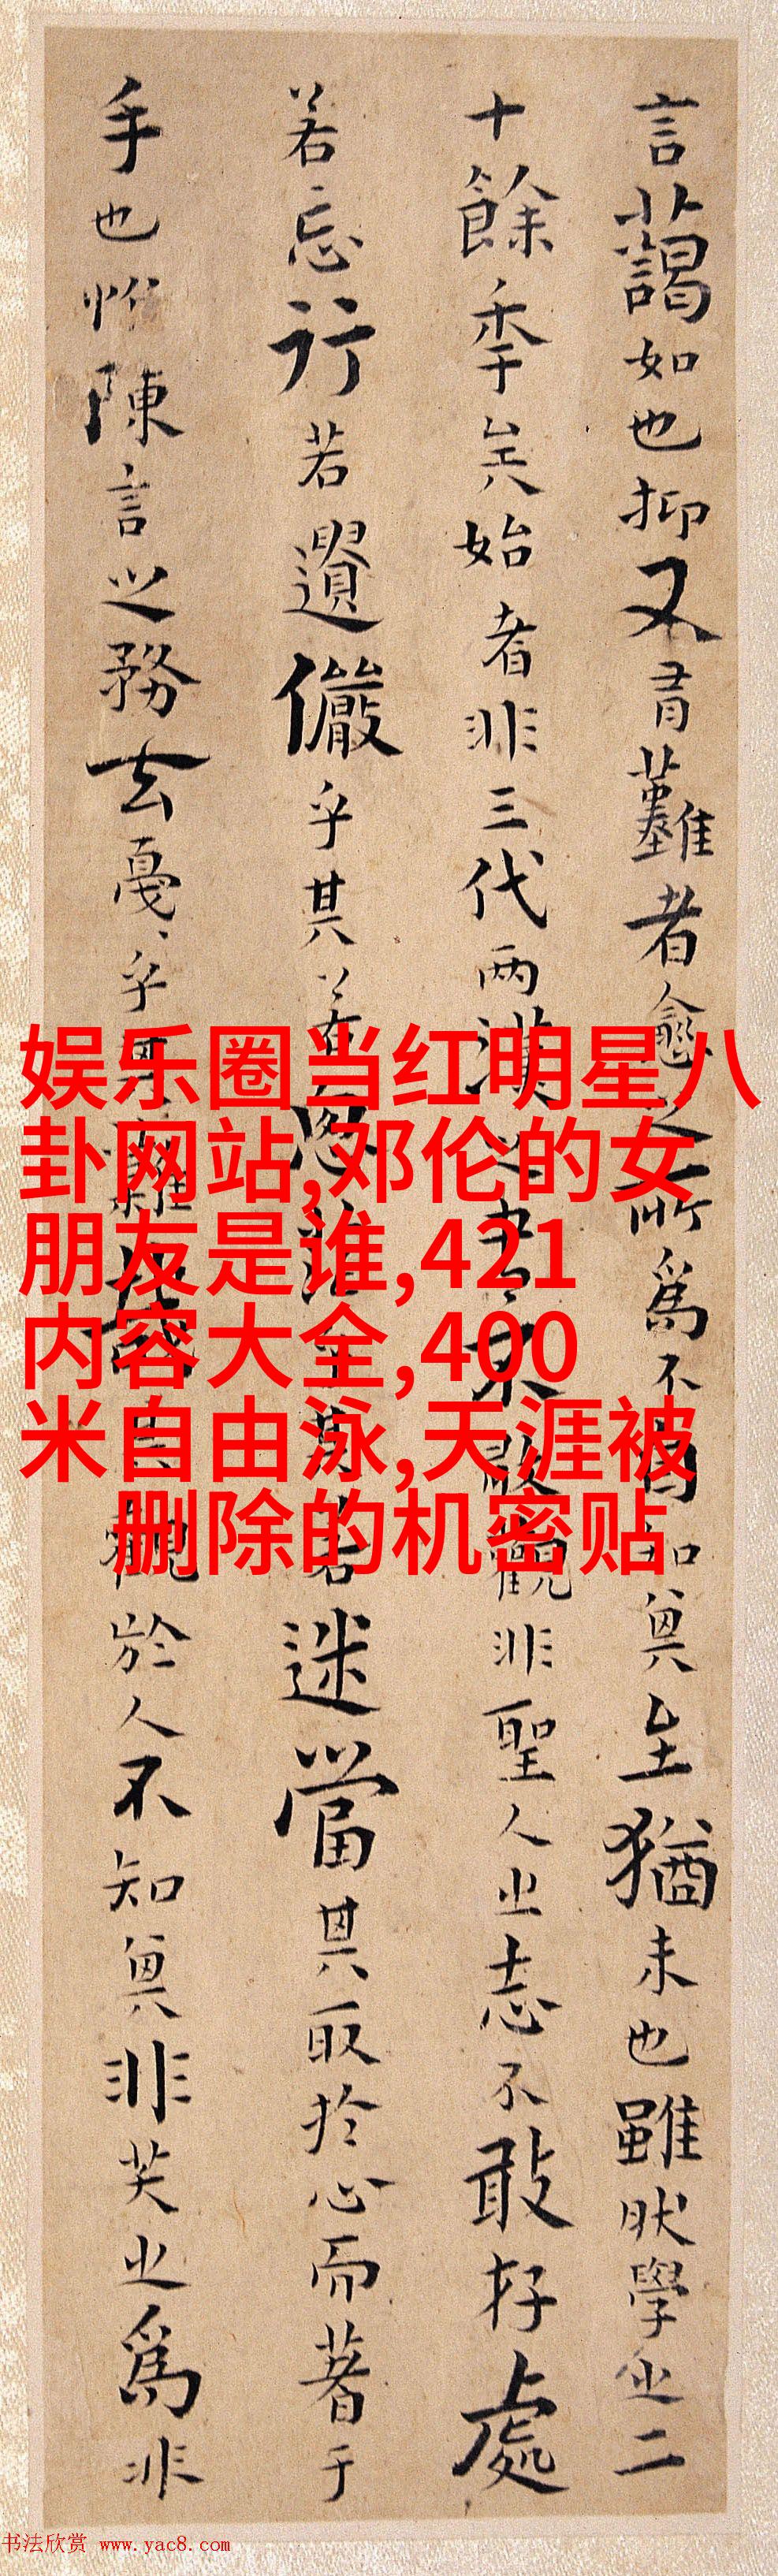 言藹如也抑又有難者愈之所爲不自知其至猶未也雖然學之二
十餘年矣始者非三代兩漢之書不敢觀非聖人之志不敢存處
若忘行若遺儼乎其若思茫乎其若迷當其取於心而著于
手也惟陳言之務去戛〻乎其難哉其觀於人不知其非笑之爲非
娱乐圈当红明星八
卦网站,邓伦的女
朋友是谁,421
内容大全,400
米自由泳,天涯被
删除的机密贴
书法欣赏 www.yac8.com